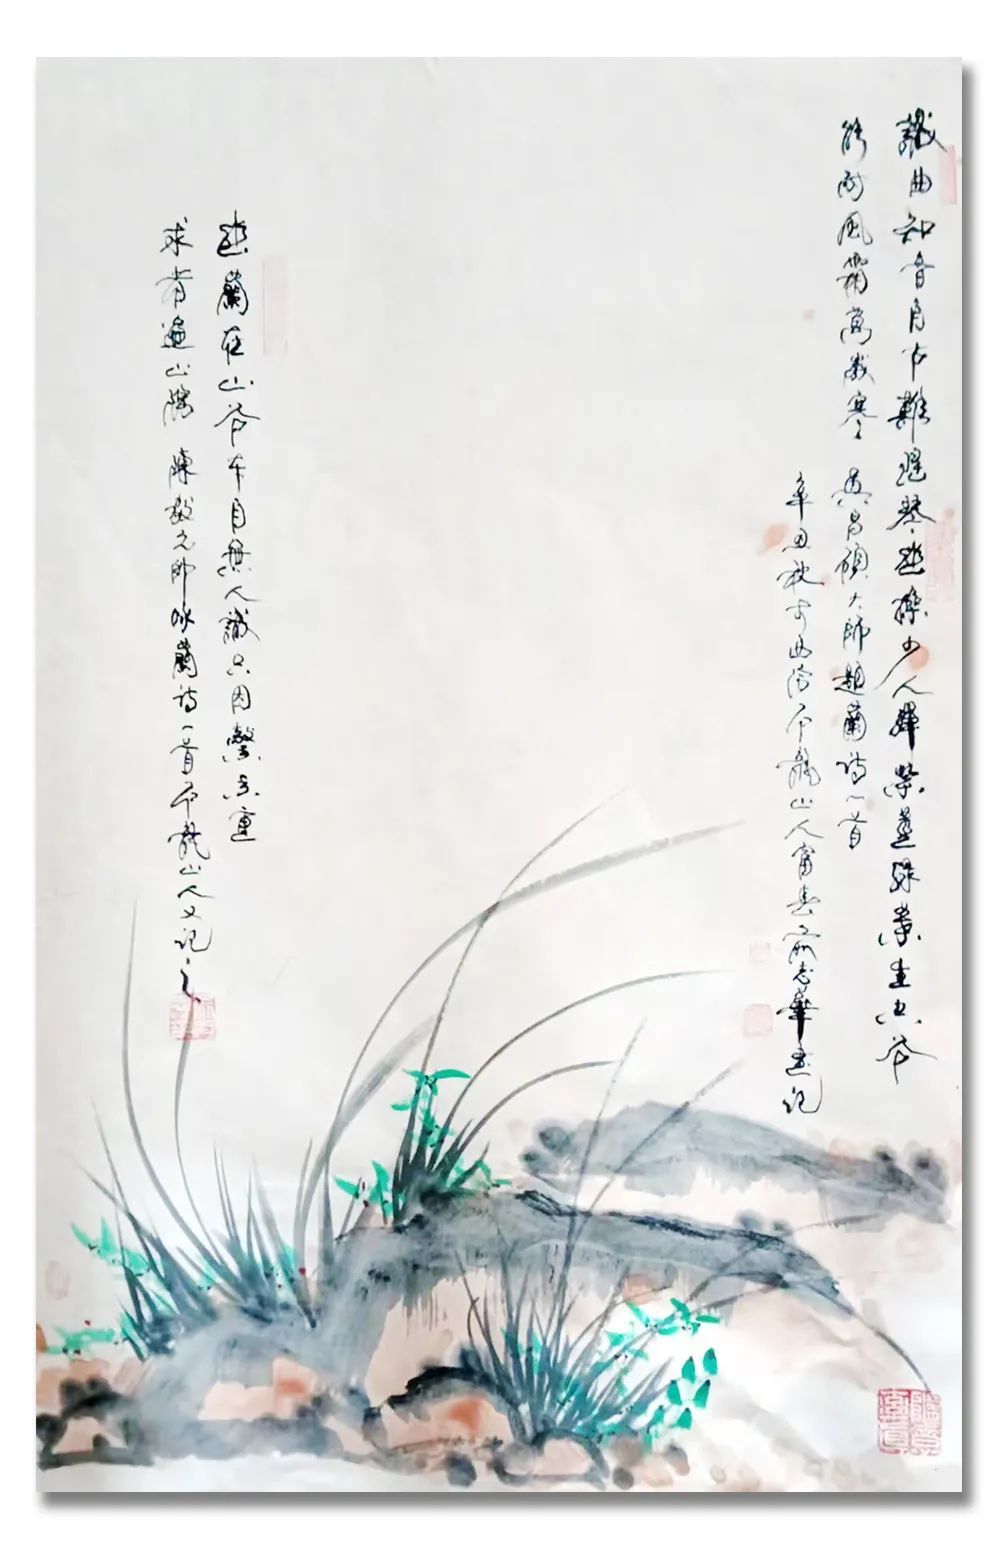 識曲知音自古難瑤琴幽操少人彈紫莖綠葉生空谷
能耐風霜萬歲寒 吳昌碩大師題蘭詩一首
辛丑秋于西泠石龍山人富春俞志華畫記
幽蘭在山谷本自無人識只因馨香重
求者遍山隅 陳毅元帥咏蘭詩一首石龍山人又記之